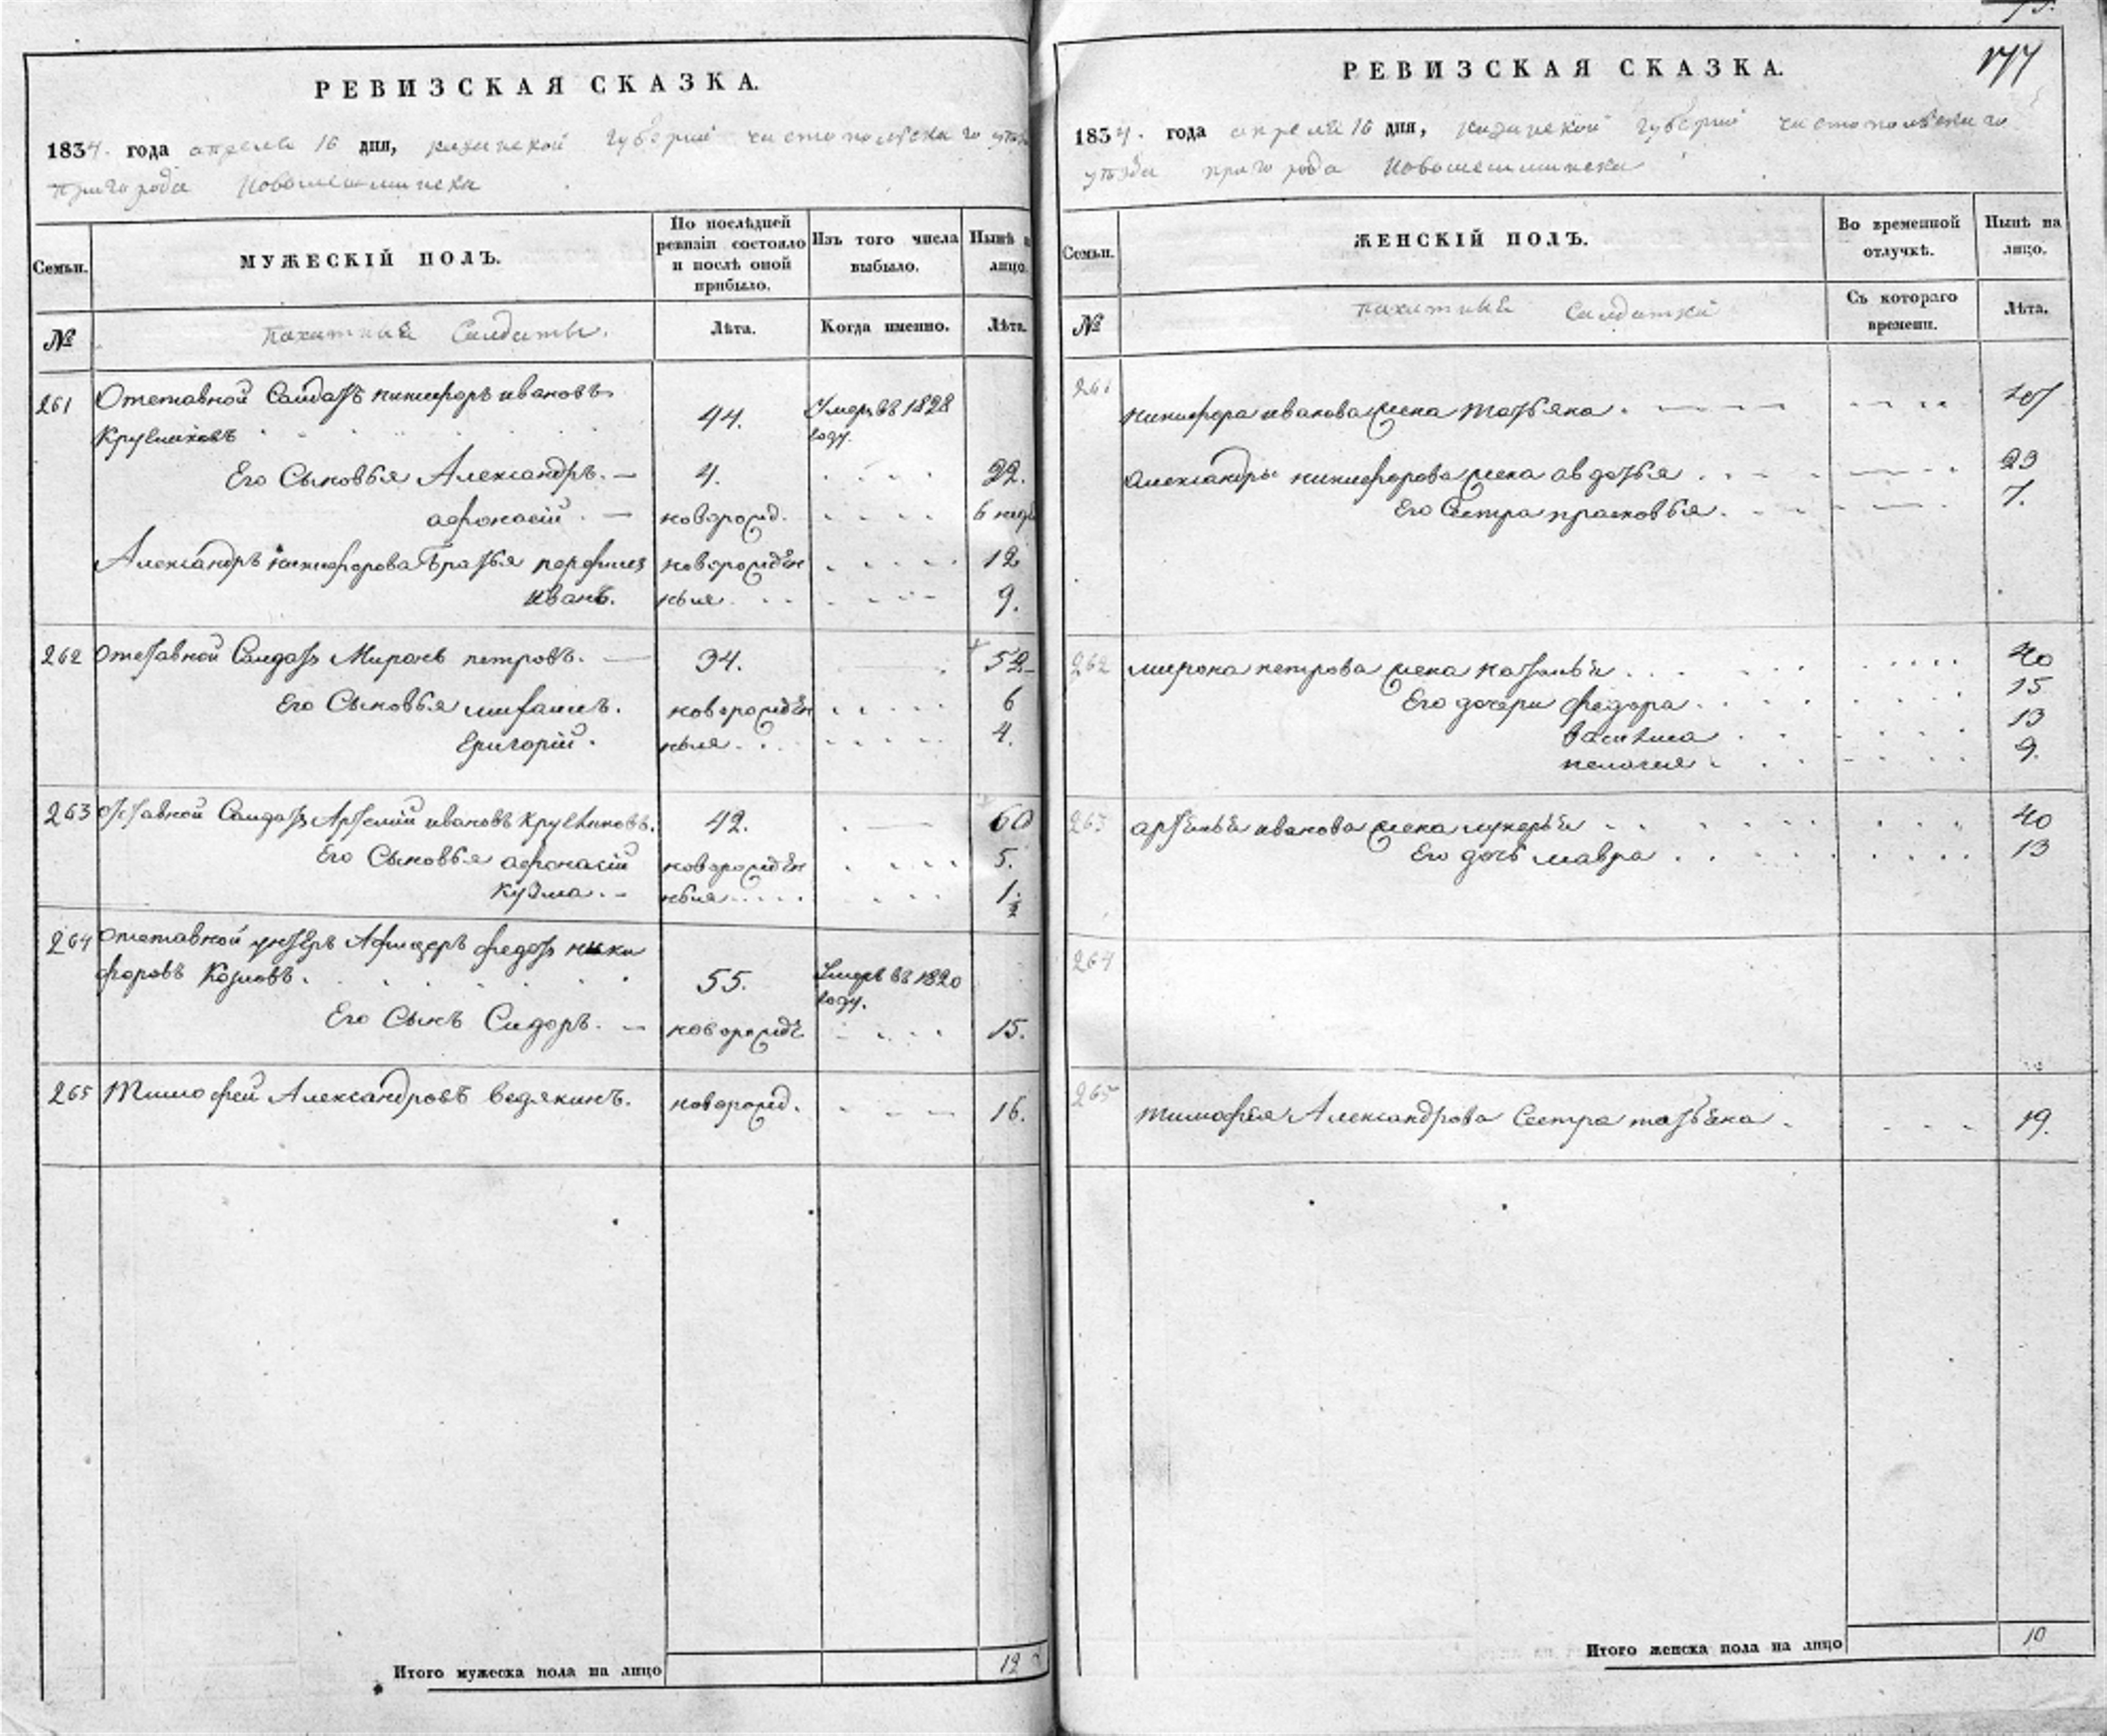 РЕВИЗСКАЯ СКАЗКА.
1834. года апреля 16 дня, казанской губерніи чистопольскаго уѣзда
пригорода Новошешминска
Семьи.
МУЖЕСКІЙ ПОЛЪ.
По послѣдней ревизіи состояло и послѣ оной прибыло.
Изъ того числа выбыло.
Нынѣ н лицо.
№
пахатные Салдаты.
Лѣта.
Когда именно.
Лѣта.
261 Отставной Салдатъ никифоръ ивановъ
Кругликовъ 44. Умеръ въ 1828 году.
Его Сыновья Александръ. 4. 22.
афонасій. новорожд. 6 неде
Александръ никифорова Братья порфилей новорожден 12
иванъ. ныя 9.
262 отставной Салдатъ Миронъ петровъ. 34. 52
Его Сыновья михаилъ. новорожден 6
Григорій. ныя 4.
263 отставной Салдатъ Артемий ивановъ Кругликовъ. 42. 60
Его Сыновья афонасій новорожден 5.
Кузма. ныя 1 1/2
264 отставной унтеръ Афицеръ федотъ ники
форовъ Козловъ. 55. Умеръ въ 1820 году.
Его Сынъ Сидоръ. новорожде 15.
265 Тимофей Александровъ ведякинъ. новорожд. 16.
Итого мужеска пола на лицо 12
177
РЕВИЗСКАЯ СКАЗКА.
1834. года апреля 16 дня, казанской губерніи чистопольскаго
уѣзда пригорода Новошешминска
Семьи.
ЖЕНСКІЙ ПОЛЪ.
Во временной отлучкѣ.
Нынѣ на лицо.
№
пахатные Салдатки
Съ котораго времени.
Лѣта.
261
никифора иванова жена татьяна.
александры никифорова жена авдотья 23
Его Сестра прасковья. 7.
262 мирона петрова жена наталья 40
Его дочери федора. 15
василиса 13
пелагея 9.
263 артемья иванова жена лукерья 40
Его дочь мавра. 13
264
265 тимофея Александрова Сестра татьяна. 19.
Итого женска пола на лицо 10